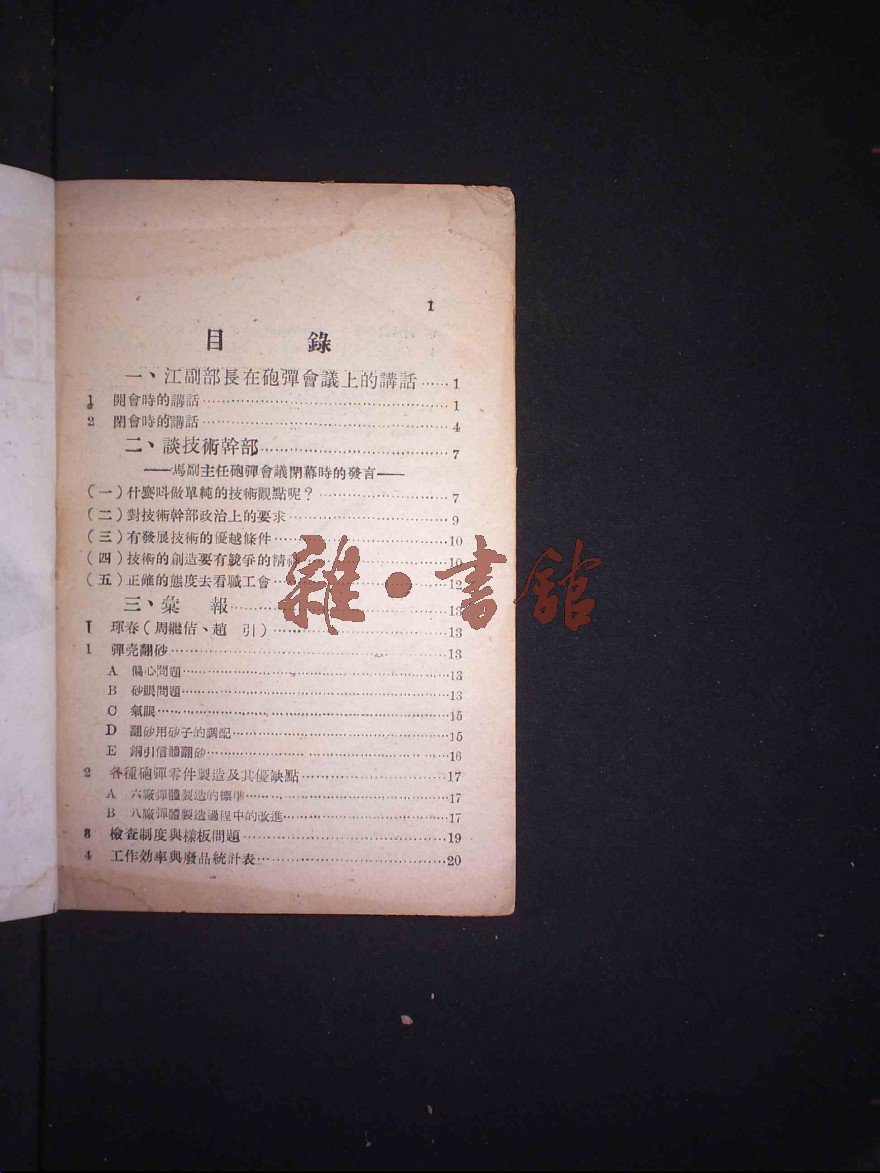 1
目 錄
一、江副部長在砲彈會議上的講話……1
1 開會時的講話……1
2 閉會時的講話……4
二、談技術幹部……7
——馬副主任砲彈會議閉幕時的發言——
(一)什麼呌做單純的技術觀點呢?……7
(二)對技術幹部政治上的要求……9
(三)有發展技術的優越條件……10
(四)技術的創造要有競爭的精神……10
(五)正確的態度去看職工會……12
三、彙 報……13
I 琿春(周繼佶、趙 引)……13
1 彈壳翻砂……13
A 偏心問題……13
B 砂眼問題……13
C 氣眼……15
D 翻砂用砂子的調配……15
E 銅引信體翻砂……16
2 各種砲彈零件製造及其優缺點……17
A 六廠彈體製造的標準……17
B 八廠彈體製造過程中的改進……17
3 檢查制度與樣板問題……19
4 工作効率與廢品統計表……20
雜·書館